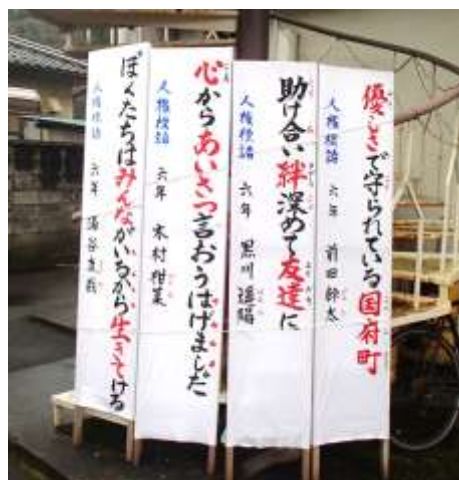 優しさで守られている国府町
人権標語 六年 前田
助け合い絆深めて友達に
人権標語 六年 黒川
心からあいさつ言おうはげましだ
人権標語 六年 木村柑菜
ぼくたちはみんながいるから生きてける
人権標語 六年